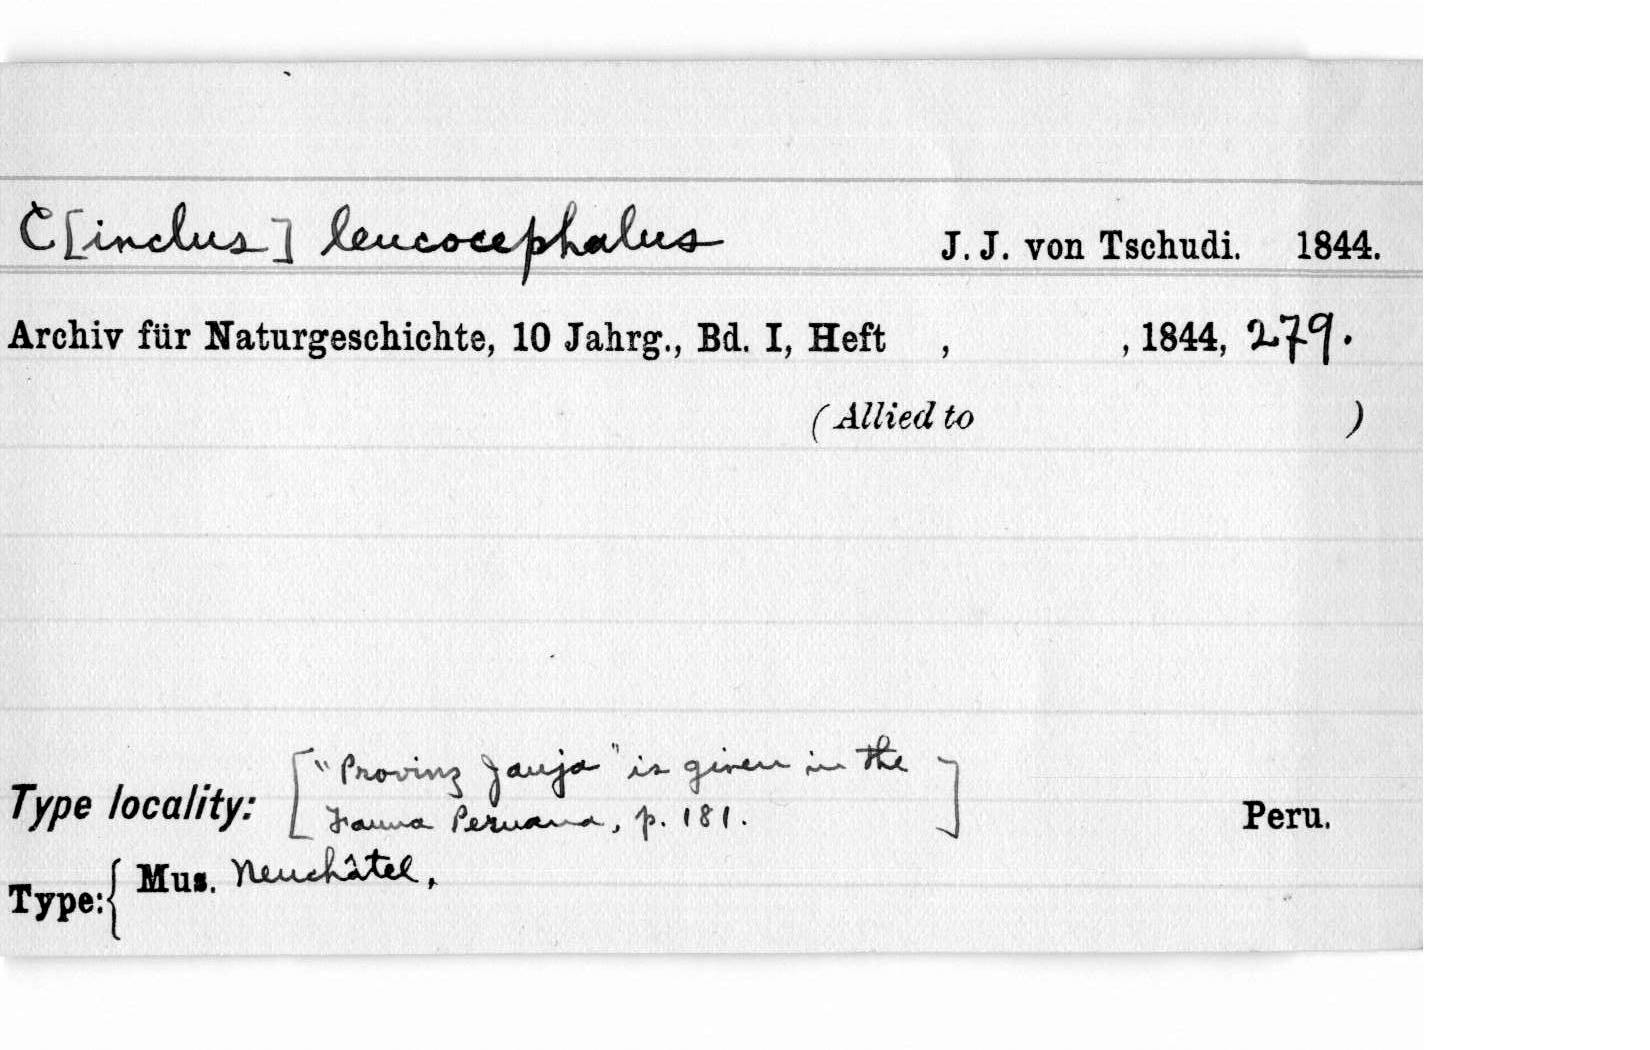 C[inclus] leucocephalus J. J. von Tschudi. 1844.
Archiv für Naturgeschichte, 10 Jahrg., Bd. I, Heft , , 1844, 279.
(Allied to )
["Provinz Jauja" is given in the
Type locality: Fauna Peruana, p. 181.] Peru.
Type:{ Mus. Neuchâtel,